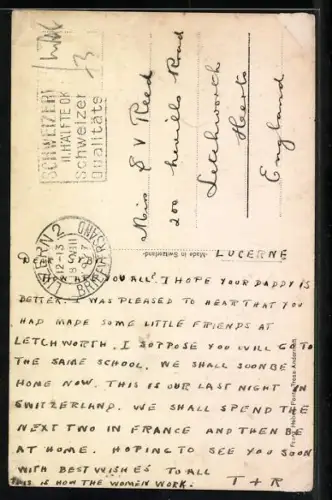 SCHWEIZER
II. HÄLFTE OK
Schweizer
Qualitäts
BERN 2
12-13
BRIEFVERSAND
Miss E V Reed
200 Nevells Road
Letchworth
Herts
England
Made in Switzerland.
LUCERNE
DEAR
HOW ARE YOU ALL? I HOPE YOUR DADDY IS
BETTER. I WAS PLEASED TO HEAR THAT YOU
HAD MADE SOME LITTLE FRIENDS AT
LETCHWORTH. I SUPPOSE YOU WILL GO TO
THE SAME SCHOOL. WE SHALL SOON BE
HOME NOW. THIS IS OUR LAST NIGHT IN
SWITZERLAND. WE SHALL SPEND THE
NEXT TWO IN FRANCE AND THEN BE
AT HOME. HOPING TO SEE YOU SOON
WITH BEST WISHES TO ALL
THIS IS HOW THE WOMEN WORK. T + R